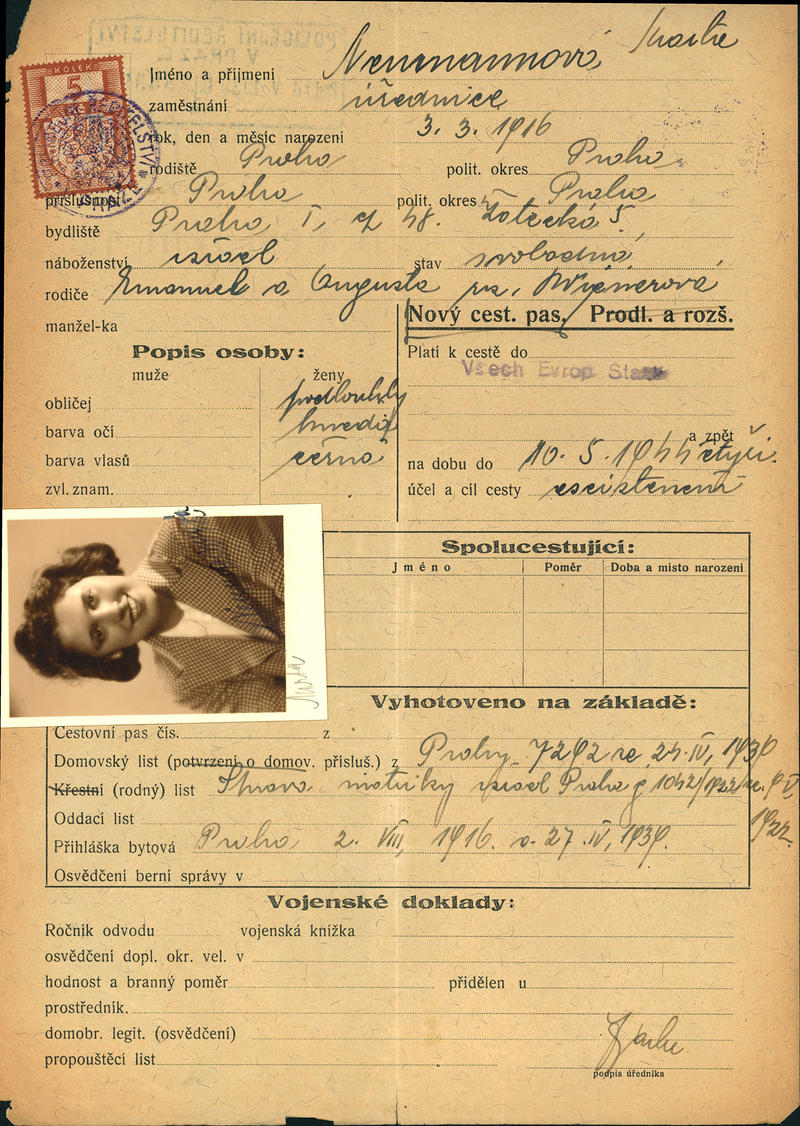 POLICEJNÍ ŘEDITELSTVÍ
V PRAZE
KOLEK
5
Jméno a příjmení Neumannová
zaměstnání úřednice
rok, den a měsíc narození 3. 3. 1916
rodiště Praha polit. okres Praha
příslušnost Praha polit. okres Praha
bydliště Praha I, čp 48. Žatecká 5
náboženství israel stav svobodná
rodiče Emanuel a Augusta roz. Wienerová
manžel-ka
Nový cest. pas. Prodl. a rozš.
Popis osoby:
Platí k cestě do
Všech Evrop
muže ženy
obličej podlouhlý
barva očí hnědé
a zpět
barva vlasů černá
na dobu do 10. 5. 1944 čtyři.
zvl. znam.
účel a cíl cesty
Spolucestující:
Jméno Poměr Doba a místo narození
Vyhotoveno na základě:
Cestovní pas čís. z
Domovský list (potvrzení o domov. přísluš.) z Prahy 7292 ze 24. IV. 1939
Křestní (rodný) list Správa matriky israel Praha č 1042/1922 ze
1922
Oddací list
Přihláška bytová Praha 2. VIII, 1916. a 27. IV, 1939.
Osvědčení berní správy v
Vojenské doklady:
Ročník odvodu vojenská knížka
osvědčení dopl. okr. vel. v
hodnost a branný poměr přidělen u
prostředník.
domobr. legit. (osvědčení)
propouštěcí list
podpis úředníka